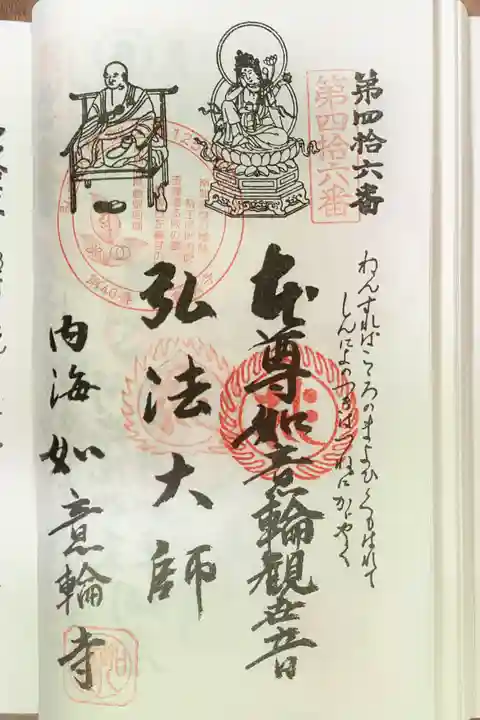 第四拾六番
第四拾六番
ねんずればこころのまよひくもはれて
しんによのつきはつねにかがやく
本尊如意輪観世音
弘法大師
内海如意輪寺